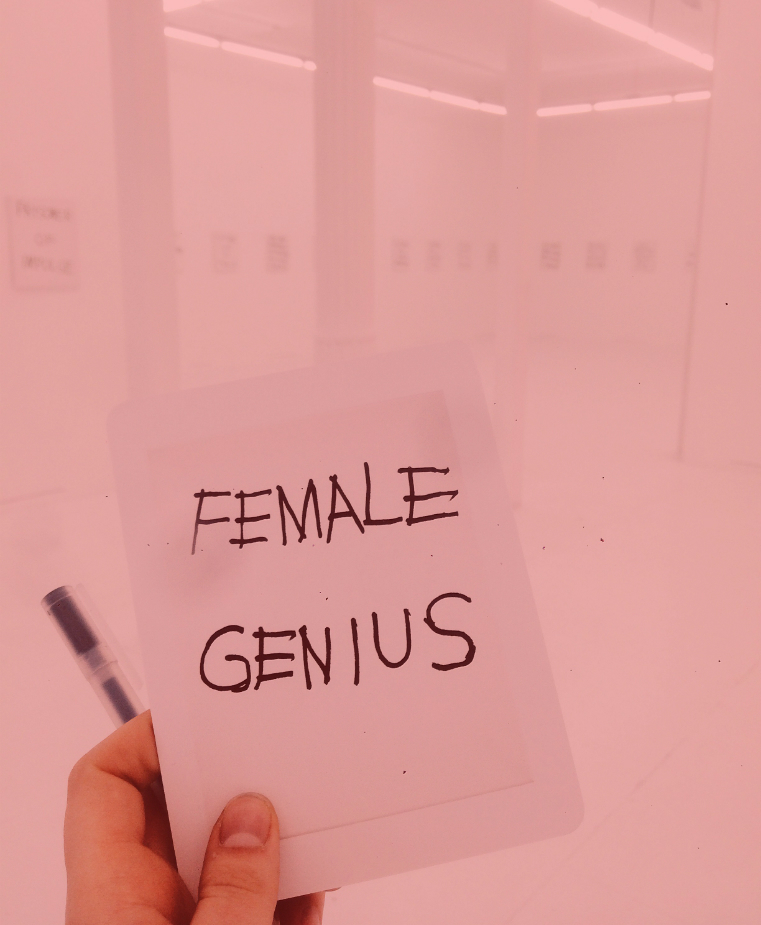 FEMALE
GENIUS